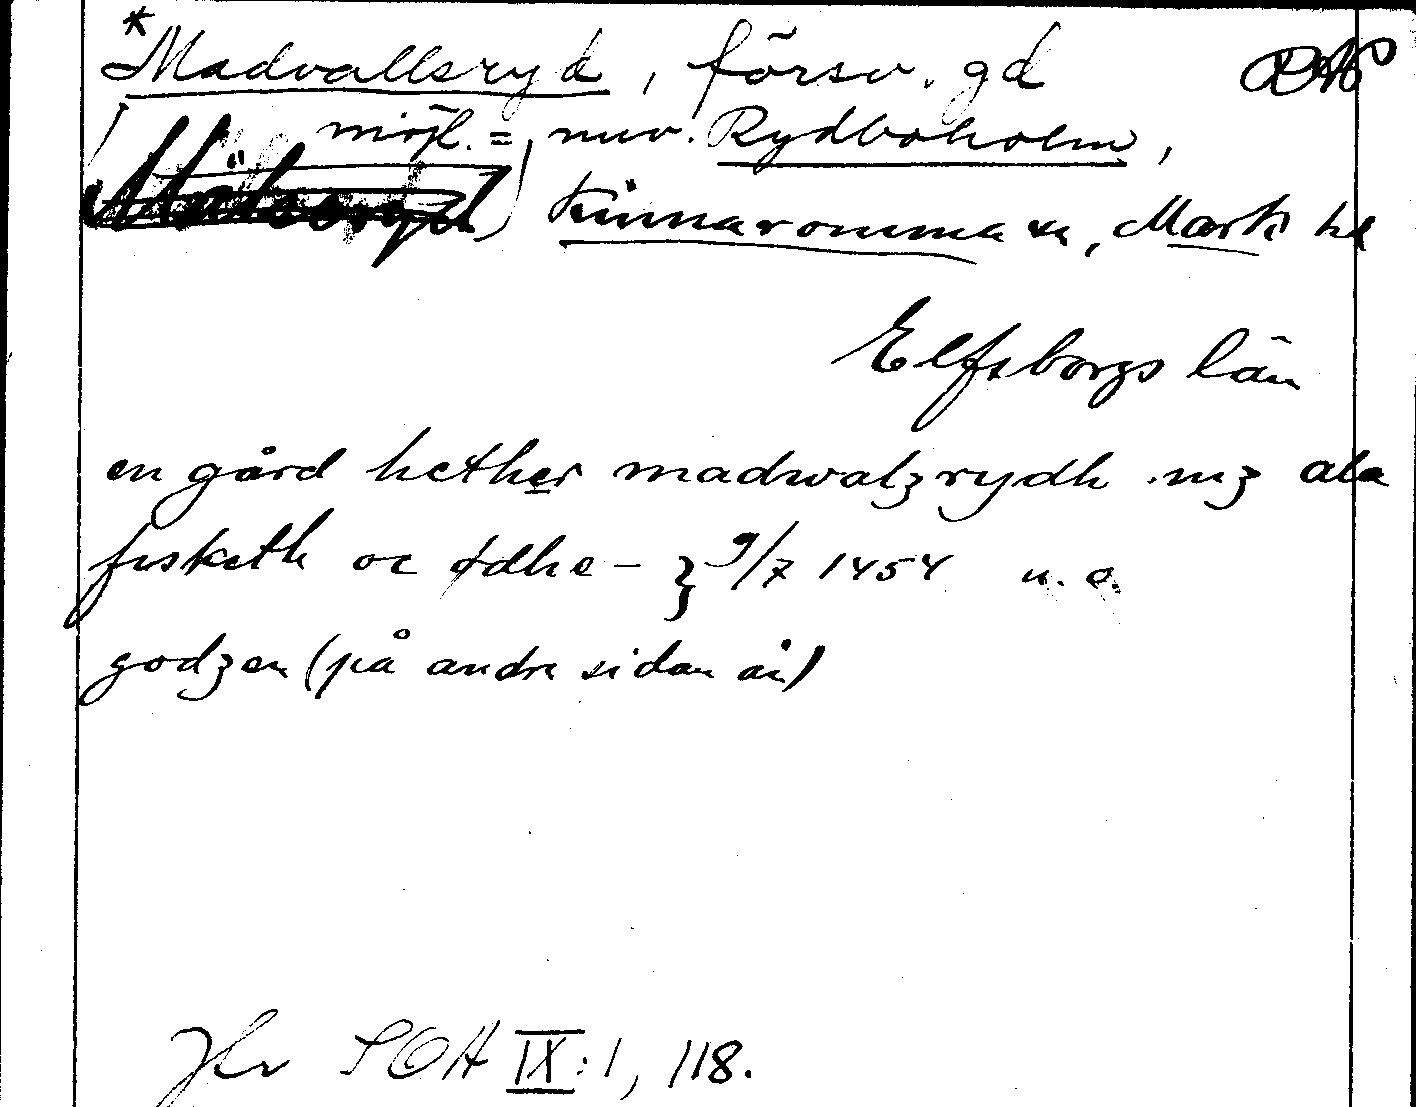 *Madvallsryd, försv. gd
möjl. = nuv. Rydboholm,
Kinnaromma sn, Mark hd
Elfsborgs län
en gård hether madwalzrydh mz ala
fisketh oc ødhe- } 9/7 1454 u.o.
godzen (på andre sidan ån)
Jfr SOÄ IX:1, 118.